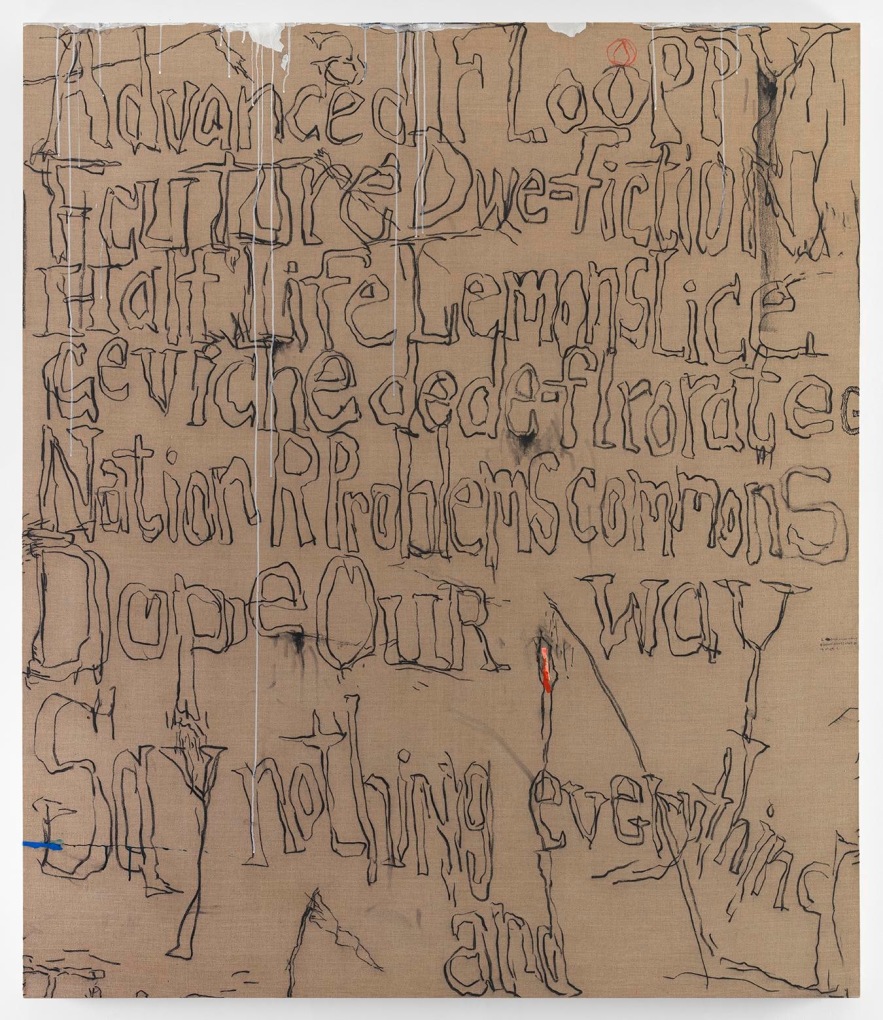 Advanced FLooPPY
Future D we-fiction
Half Life Lemons Lice
Ceviche de de-flrorate
Nation R Problems commons
Dope OuR way
Say nothing everything
and